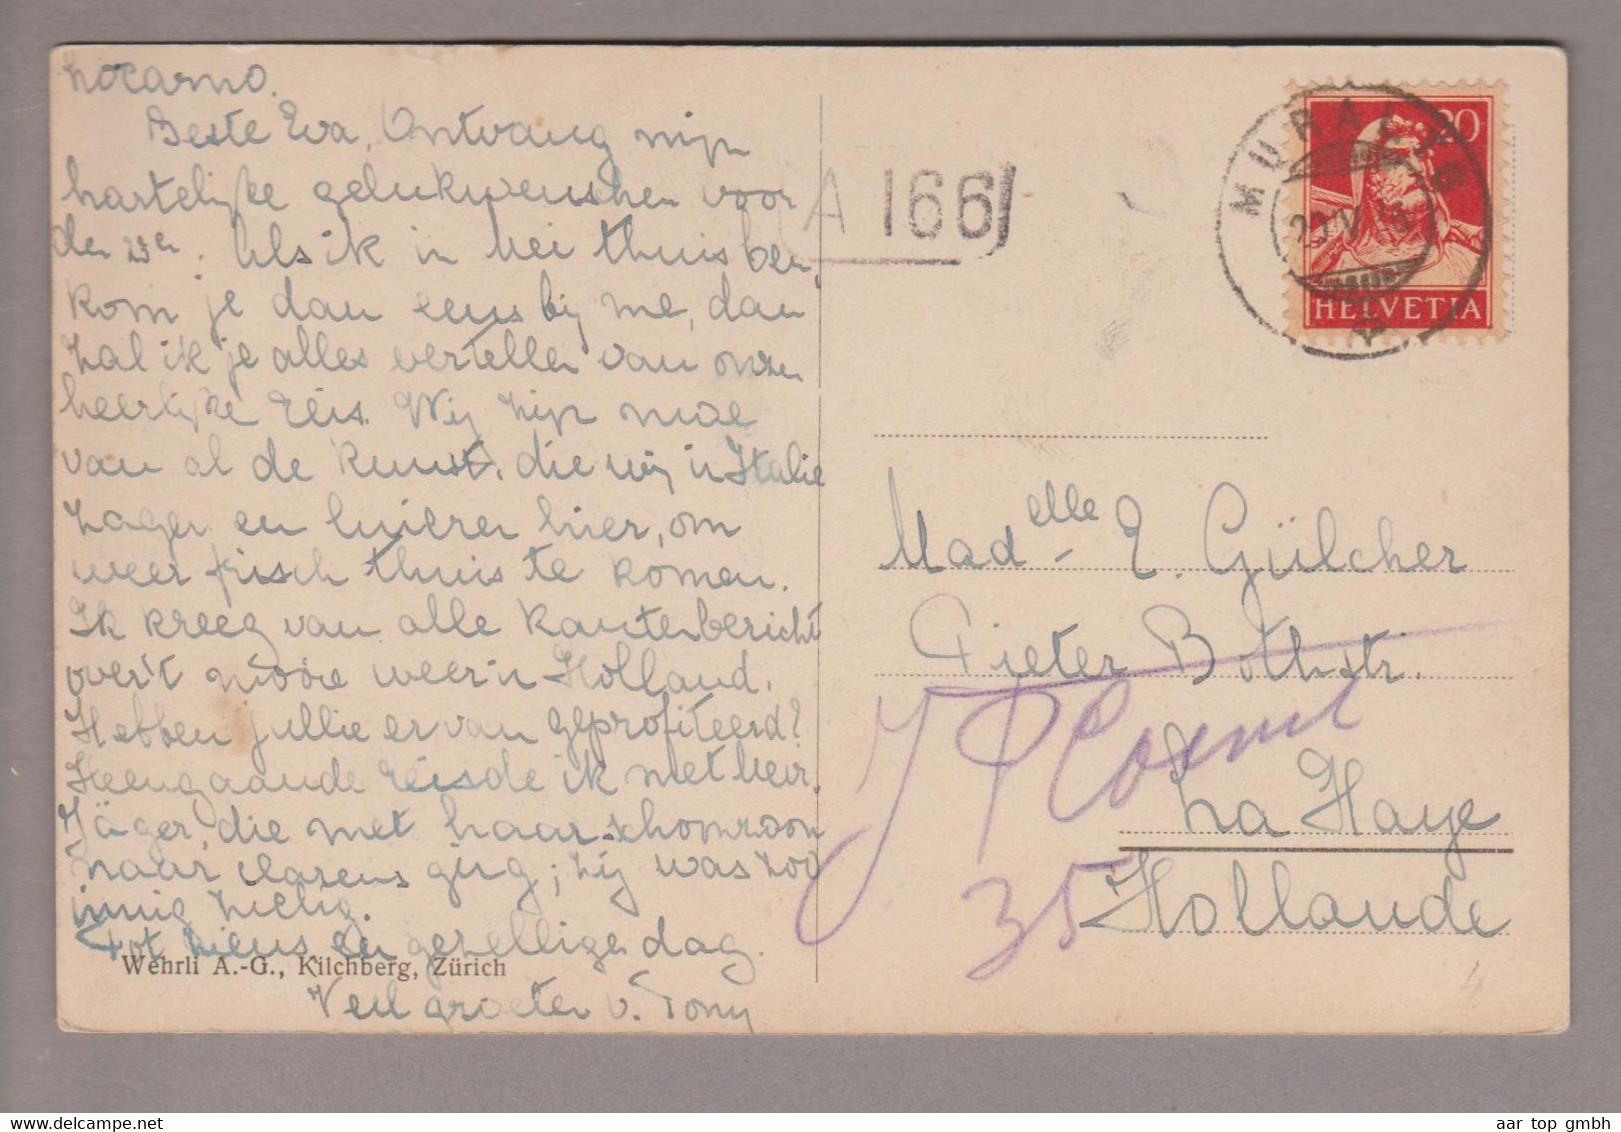 Locarno.
Beste Eva, Ontvang mijn
hartelijke gelukwenschen voor
den 23en. Als ik in Mei thuis ben,
kom je dan eens bij me, dan
zal ik je alles vertellen van onze
heerlijke reis. Wij zijn moe
van al de kunst, die wij in Italie
zagen en luieren hier, om
weer frisch thuis te komen.
Ik kreeg van alle kanten bericht
over't mooie weer in Holland.
Hebben jullie er van geprofiteerd?
Heengaande reisde ik met Mevr.
Jäger, die met haar schoonzoon
naar Clarens ging; zij was zoo
innig zielig.
Tot ziens en gezellige dag.
Veel groeten v. Tony
Wehrli A.-G., Kilchberg, Zürich
A 166
MURALTO
20
HELVETIA
Madelle E. Gülcher
Pieter Bothstr.
35
La Haye
Hollande
aar top gmbh
www.delcampe.net